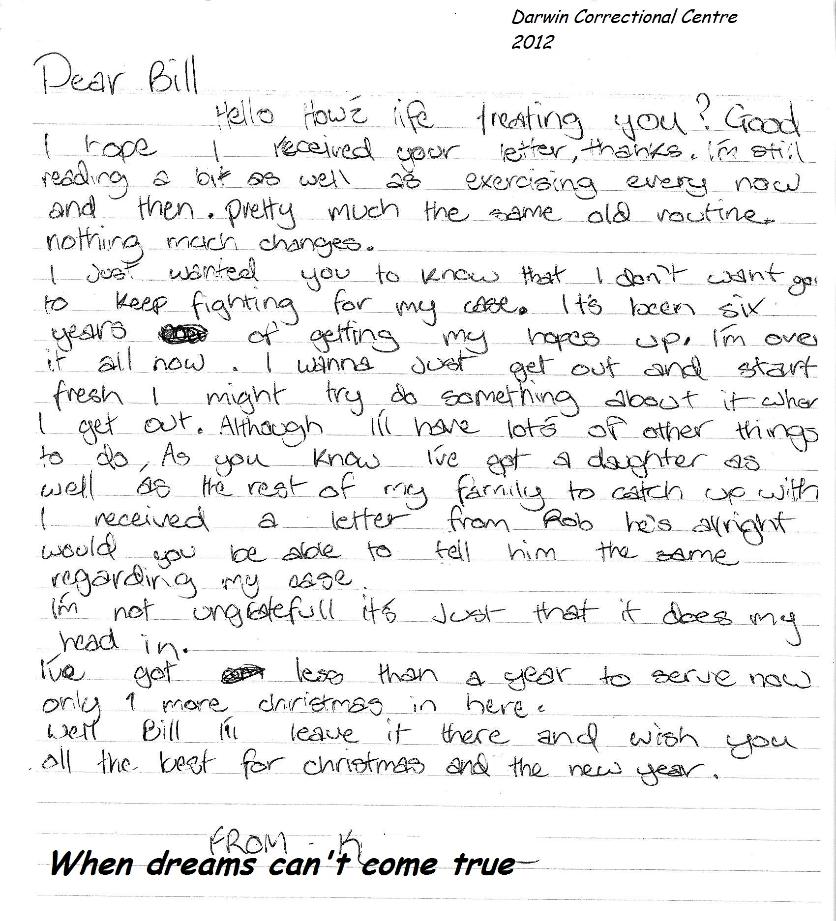 Darwin Correctional Centre
2012
Dear Bill
Hello How's life treating you? Good
I hope I received your letter, thanks. I'm still
reading a bit as well as exercising every now
and then. pretty much the same old routine.
nothing much changes.
I just wanted you to know that I don't want
to keep fighting for my case. It's been six
years of getting my hopes up. I'm over
it all now. I wanna just get out and start
fresh I might try do something about it when
I get out. Although I'll have lot's of other things
to do, As you know I've got a daughter as
well as the rest of my family to catch up with
I received a letter from Rob he's alright
would you be able to tell him the same
regarding my case.
I'm not ungratefull it's just that it does my
head in.
I've got less than a year to serve now
only 1 more christmas in here.
well Bill I'll leave it there and wish you
all the best for christmas and the new year.
FROM - K
When dreams can't come true